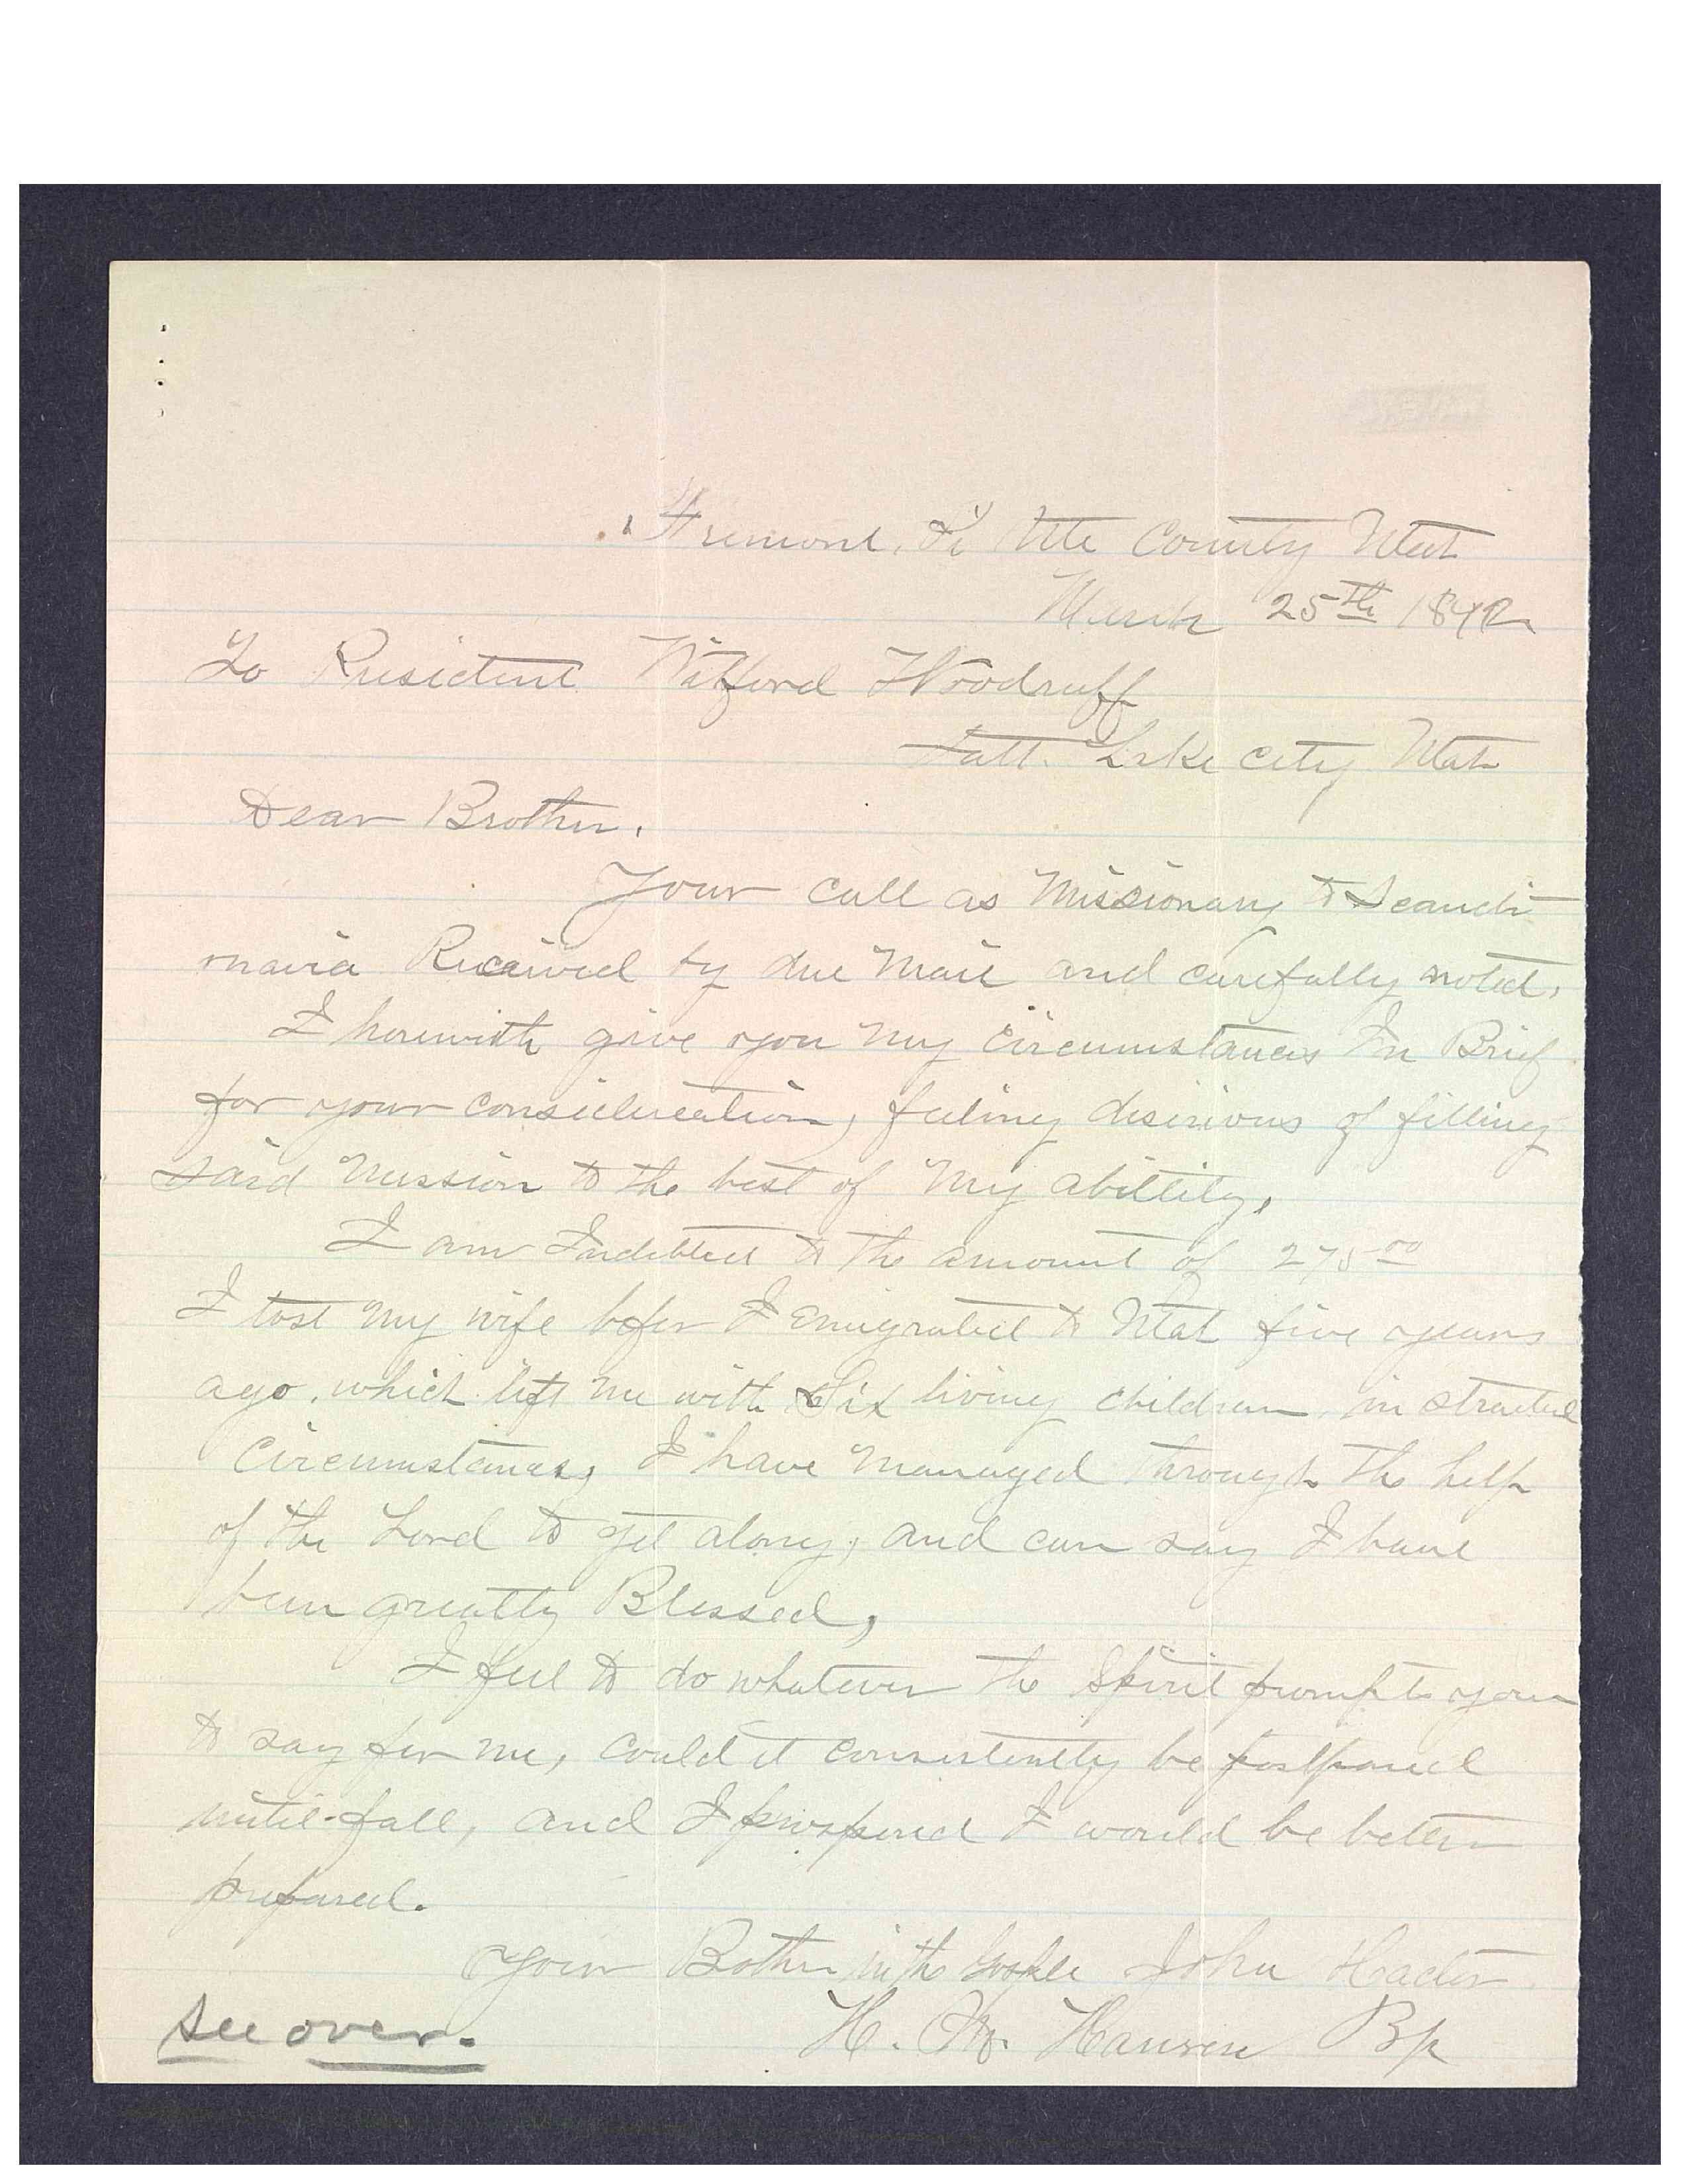 Fremont, Pi Ute County Utah
March 25th 1892
To President Wilford Woodruff
Salt Lake City Utah
Dear Brother,
Your call as Missionary to Scandi
navia Received by due Mail and carefully noted,
I herewith give you my circumstances In Brief
for your consideration, feeling desirious of filling
said Mission to the best of My abillity,
I am Indebted to the amount of 275 00
I lost my wife befor I Emigrated to Utah five years
ago, which left me with Six living children in
Circumstances, I have managed through the help
of the Lord to get along, and can say I have
been greatly Blessed,
I feel to do whatever the Spirit prompts you
to say for me, could it consistently be postponed
until fall, and I prospered I would be better
prepared.
Your Bother in the John
H. Hansen Bp
See over.